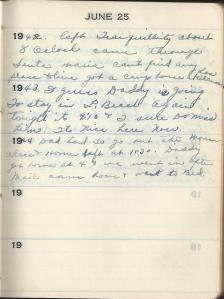 JUNE 25
1942. Left Tranquillity about
8 Oclock came through
Santa maria cant find any
place to live got a camp house
1943. I guess Daddy is going
to stay in L. Beach again
tonight to 9/10 & I sure do miss
him. Its Nice here Now.
1944 Dad had to go out the
Home left at 11:30. Daddy
got home at 4 & we went in after
mail came home & went to Bed.
19
19